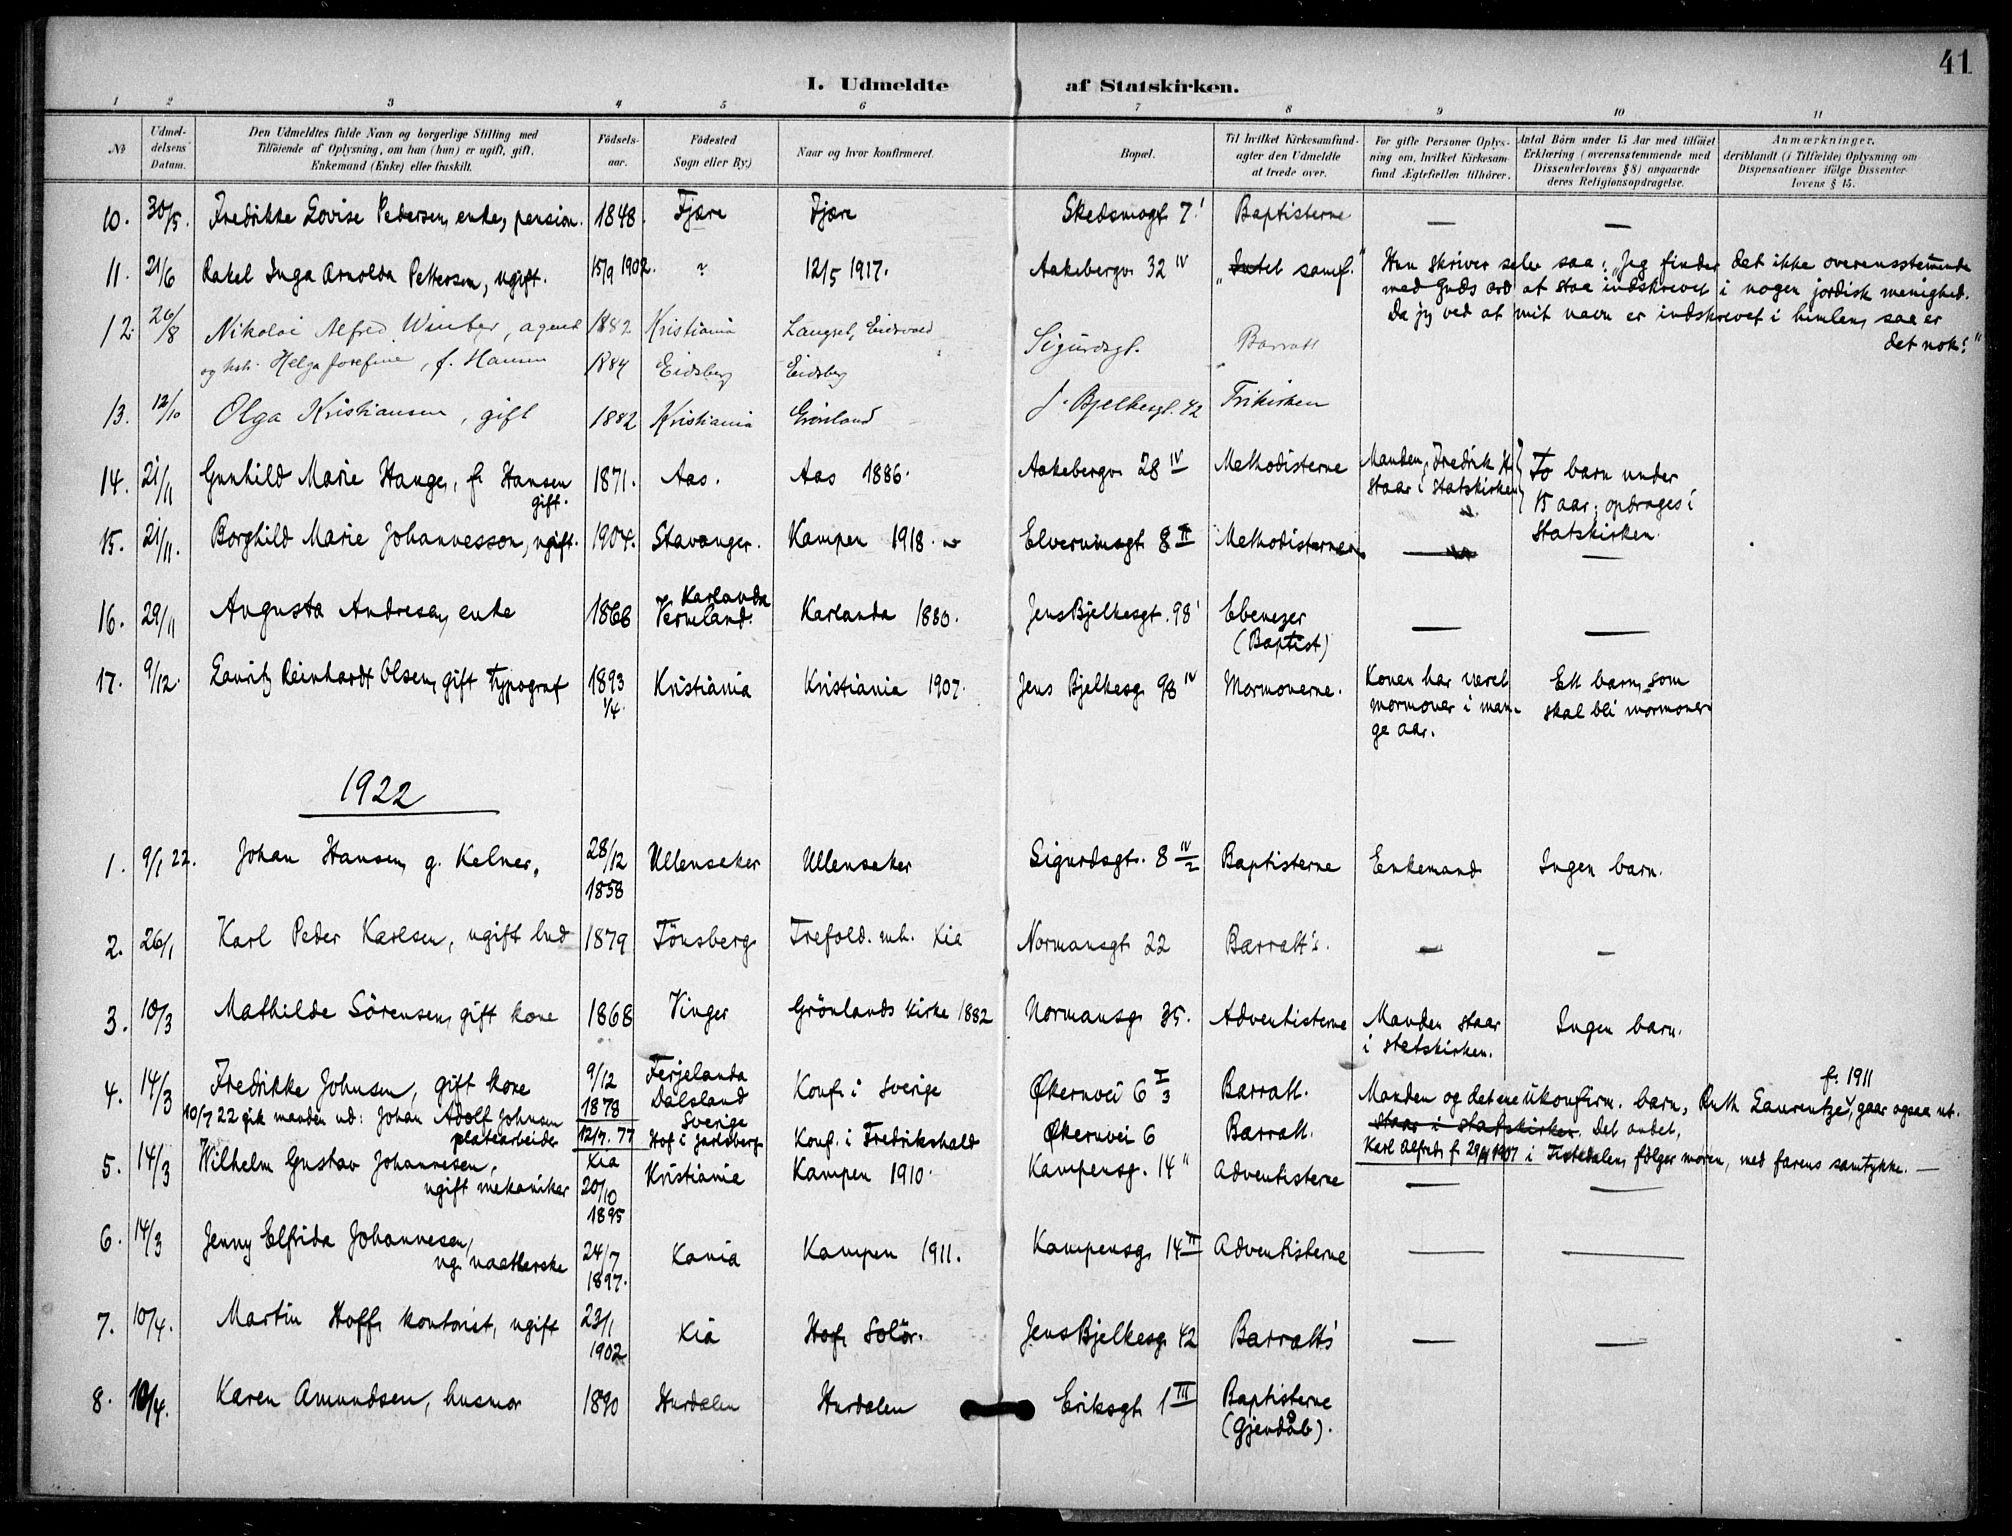 41
I. Udmeldte af Statskirken.
1 2 3 4 5 6 7 8 9 10 11
No Udmeldelsens Datum. Den Udmeldtes fulde Navn og borgerlige Stilling med Tilføiende af Oplysning, om han (hun) er ugift, gift, Enkemand (Enke) eller fraskilt. Fødselsaar. Fødested Sogn eller By.) Naar og hvor konfirmeret. Bopæl. Til hvilket Kirkesamfund agter den Udmeldte at træde over. For gifte Personer Oplysning om, hvilket Kirkesamfund Ægtefællen tilhører. Antal Børn under 15 Aar med tilføiet Erklæring (overensstemmende med Dissenterlovens § 8) angaaende deres Religionsopdragelse. Anmærkninger, deriblandt (i Tilfælde) Oplysning om Dispensationer ifølge Dissenterlovens § 15.
10. 30/5. Fredrikke Lovise Pedersen, enke, pension. 1848. Fjære Fjære Skedsmogt. 7 I Baptisterne — —
11. 21/6 Rakel Inga Arnolda Pettersen, ugift. 15/9 1902. " 12/5 1917. Aakebergv. 32 IV "Intet samf." Hun skriver selv saa: "Jeg finder det ikke overensstemmende
med Guds ord at staa indskrevet i nogen jordisk menighed.
Da jeg ved at mit navn er indskrevet i himlen, saa er
det nok."
12. 26/8 Nikolai Alfred , agent 1882 Kristiania Langset, Eidsvold Sigurdsgt. Barratt
og hst. Helga Josefine, f. Hansen 1884 Eidsberg Eidsberg
13. 12/10 Olga Kristiansen, gift 1882 Kristiania Grønland J. Bjelkesgt. 42 Frikirken
14. 21/11 Gunhild Marie Hauge, f. Hansen 1871. Aas. Aas 1886. Aakebergv. 28 IV Methodisterne Manden, Fredrik H. To barn under
gift. staar i Statskirken 15 aar, opdrages i
Statskirken.
15. 21/11. Borghild Marie Johannesson, ugift. 1904. Stavanger. Kampen 1918. Elverumsgt. 8 II Methodisterne — —
16. 29/11 Augusta Andresen, enke 1866 Karlanda Vermland. Karlanda 1880. Jens Bjelkesgt. 98 I Ebenezer — —
(Baptist)
17. 9/12. Lauritz Reinhardt Olsen, gift typograf 1893 1/4. Kristiania Kristiania 1907. Jens Bjelkesg. 98 IV Mormonerne. Konen har været Ett barn, som
mormoner i man- skal bli mormoner
ge aar.
1922
1. 9/1 22. Johan Hansen, g. Kelner. 28/12 1858 Ullensaker Ullensaker Sigurdsgt. 8 IV/2 Baptisterne Enkemand Ingen barn.
2. 26/1 Karl Peder Karlsen, ugift bud 1879 Tönsberg Trefold. mh. Kia Normansgt 22 Barratt's. — —
3. 10/3 Mathilde Sörensen, gift kone 1868 Vinger Grönlands kirke 1882 Normansg. 35. Adventisterne Manden staar Ingen barn.
i statskirken.
4. 14/3 Fredrikke Johnsen, gift kone 9/12 1878 Ferjelanda Dalsland Sverige Konf. i Sverige Økernvei 6 I/3 Barratt. Manden og det ene ukonfirm. barn, Ruth Laurentze, f. 1911 gaar ogsaa ut.
10/7 22 gik manden ud: Johan Adolf Johnsen platearbeider 12/7. 77 Hof i Jarlsberg Konf. i Fredrikshald Økernvei 6 Barratt. staar i statskirken. Det andet,
Karl Alfred, f. 29/4 1907 i Tistedalen, følger moren, med farens samtykke. —
5. 14/3 Wilhelm Gustav Johannesen, ugift mekaniker Kia 20/10 1895 Kristiania Kampen 1910. Kampensg. 14 II Adventisterne — —
6. 14/3 Jenny Elfrida Johannesen, ug. naatlerske 24/7 1897. Kania Kampen 1911. Kampensg. 14 II Adventisterne — —
7. 10/4. Martin Hoff, kontorist, ugift 23/1 1902 Kia Hof, Solör. Jens Bjelkesg. 42 Barratts — —
8. 10/4. Karen Amundsen, husmor 1890 Hurdalen Hurdalen Eriksgt. 1 III Baptisterne
(Gjendåb).